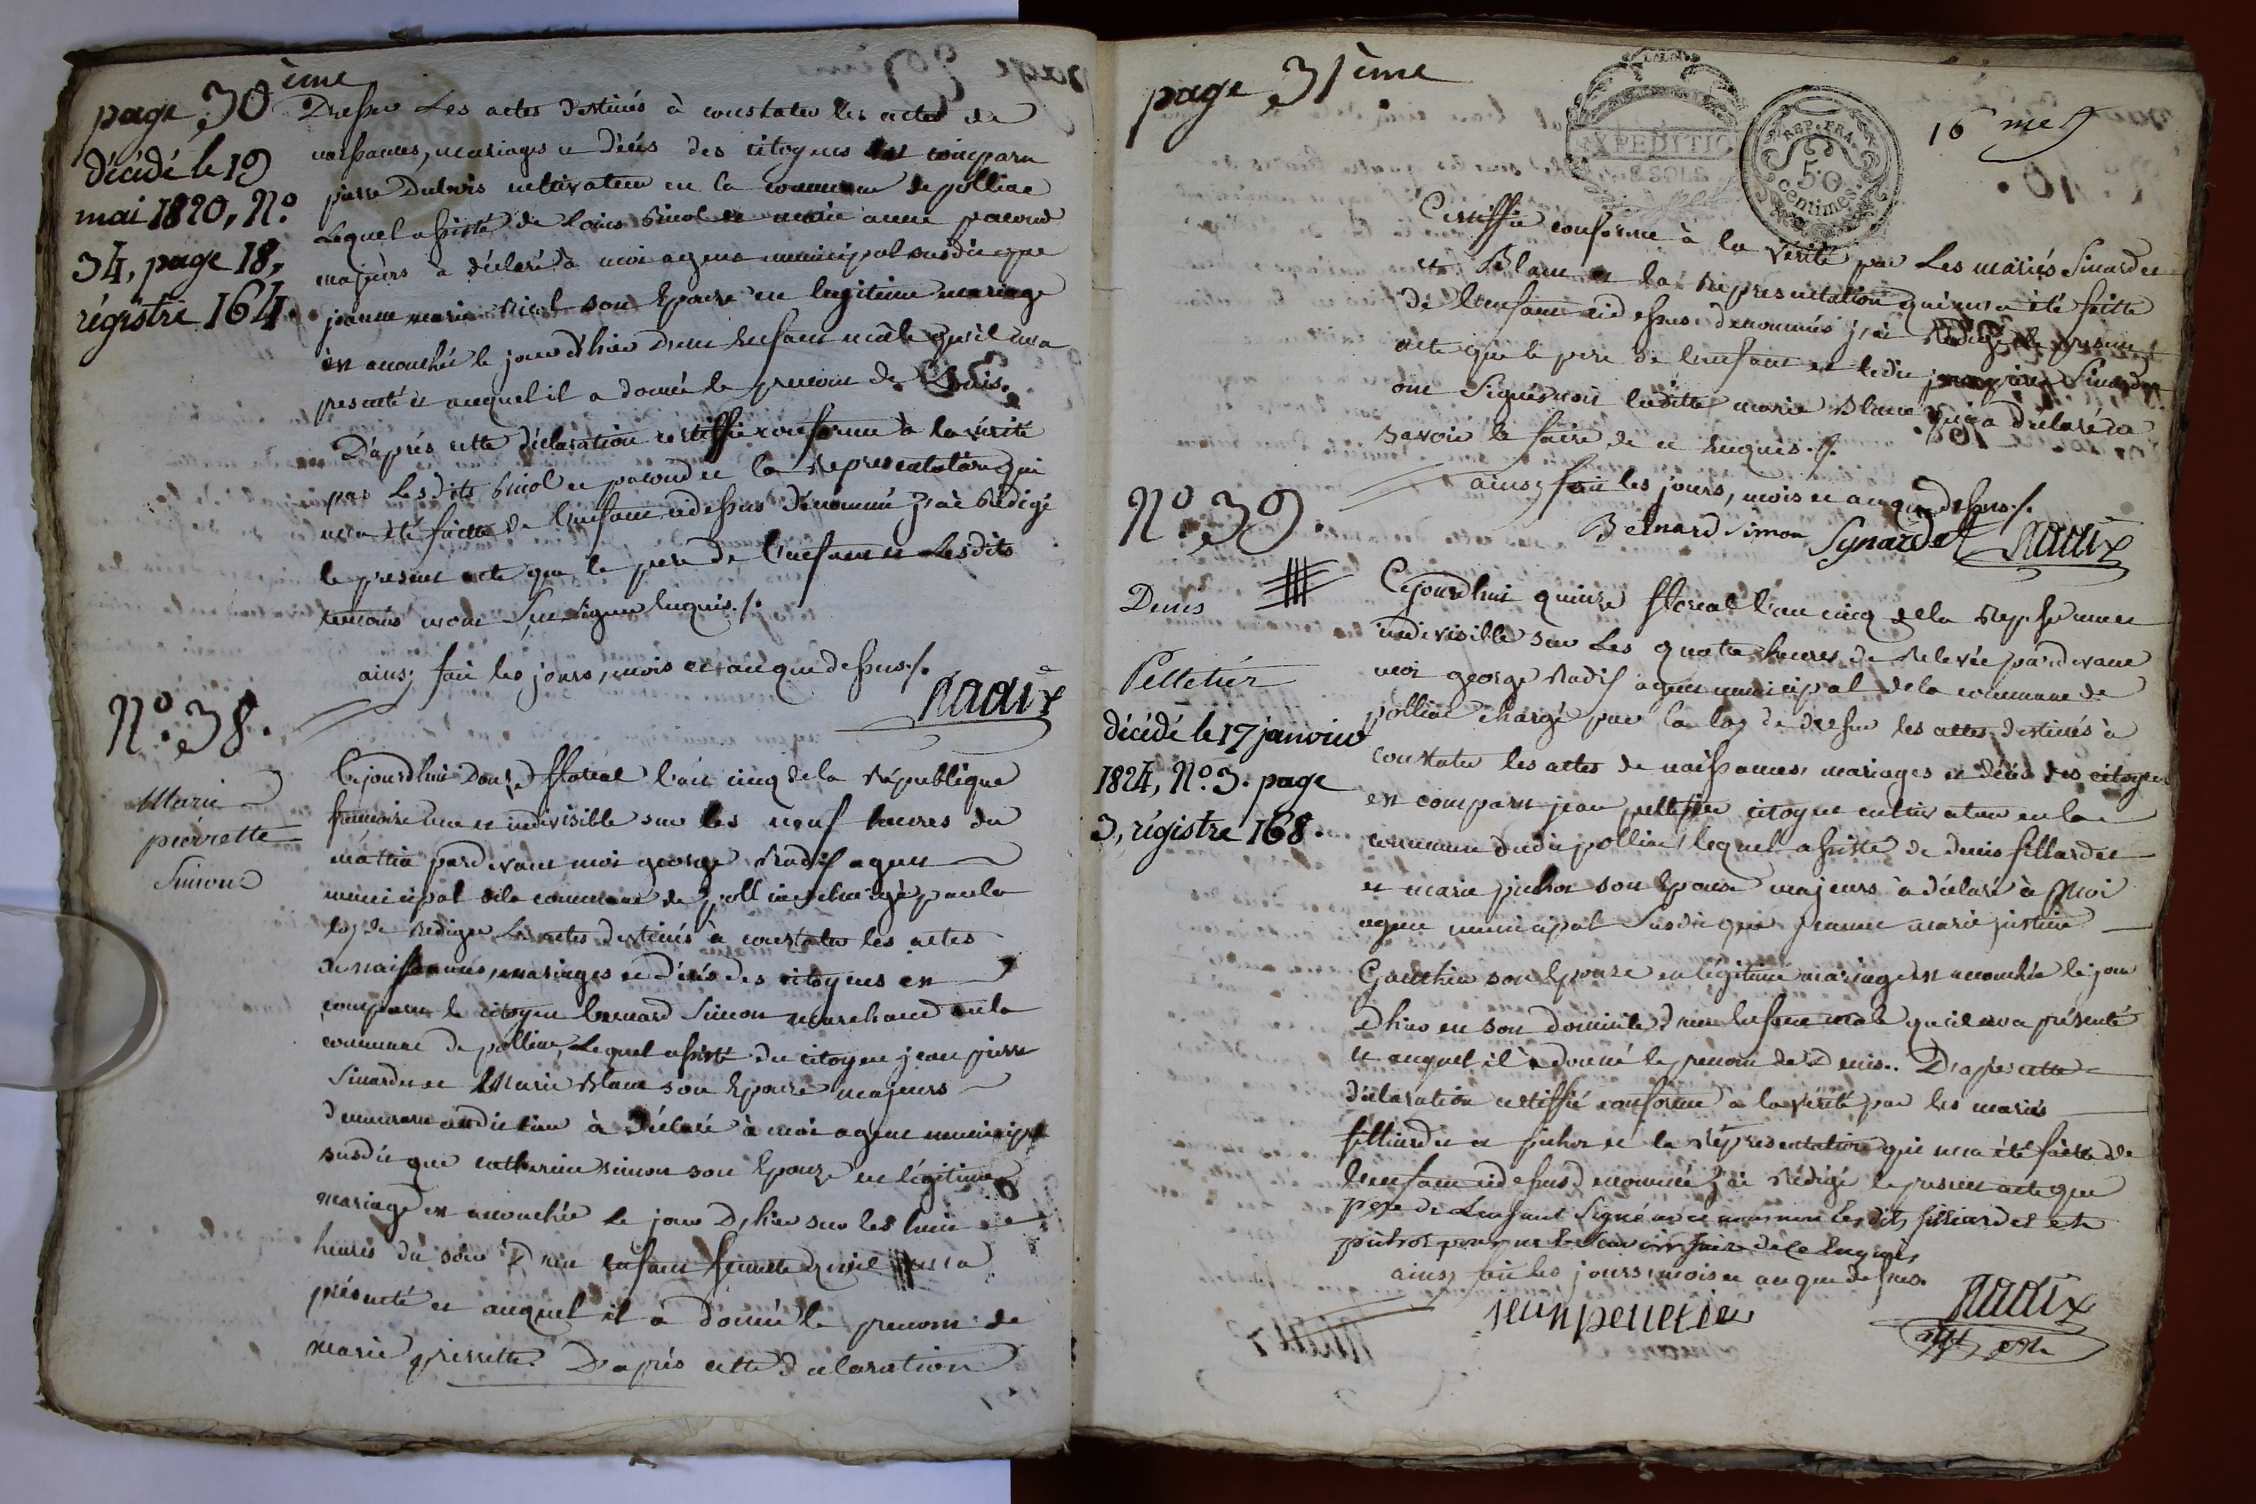 page 30ème
décédé le 19
mai 1820, No.
34, page 18,
régistre 164.
Dresser Les actes destinés à constater les actes de
naissances, mariages et décés des citoyens est comparu
pierre Dubois cultivateur en la commune de polliac
Lequel assisté de Louis et marie anne pacoud
majeurs a déclaré à moi agent municipal susdit que
jeanne marie son Epouse en legitime mariage
est accouchée le jour d'hier d'un Enfant mâle qu'il m'a
presenté et auquel il a donné le prenom de Louis.
D'aprés cette déclaration certiffié conforme à la vérité
par Lesdits et pacoud et la Representation qui
m'a été faitte de l'enfant cidessus dénommé j'ai Rédigé
le present acte que le pere de l'enfant et Lesdits
temoins n'ont Sçu signer Enquis./.
ainsi fait les jours, mois et an que dessus./.
Radix
No. 38.
Marie
pierrette
Simond
Cejourdhui Douze floréal l'an cinq de la République
francaise une et indivisible sur les neuf heures du
matin pardevant moi george Radix agent
municipal de la commune de polliac chargé par la
loy de Rediger Les actes destinés à constater les actes
de naissances, mariages et décés des citoyens est
comparu le citoyen bernard Simon marchand en la
commune de polliac, Lequel assisté du citoyen jean pierre
Sinardet et Marie Blanc son Epouse majeurs
demeurant audit lieu à Déclaré à moi agent municipal
susdit que catherine simon son Epouze en légitime
mariage est accouchée Le jour D'hier sur les huit
heures du soir D'un enfant femelle qu'il m'a
présenté et auquel il à donné le prenom de
marie pierrette. D'aprés cette déclaration
page 31ème
EXPEDITIO
REP. FRA.
50
centimes.
16 me
Certiffié conforme à la vérité par Les mariés Sinardet
et Blanc et la Representation qui m'a été faitte
de l'enfant cidessus dénommés j'ai Rédigé le present
acte que le pere de l'enfant et ledit jean pierre Sinardet
ont Signés non laditte marie Blanc qui a déclaré ne
savoir le faire de ce Enquis./.
ainsi fait les jours, mois et an que dessus./.
Bernard Simon Synardet Radix
No. 39.
Denis
Pelletier
décédé le 17 janvier
1824, No. 3. page
3, régistre 168.
Cejourdhui quinze floreal l'an cinq de la Rep. fse une et
indivisible sur Les quatre heures de Relevée pardevant
moi george Radix agent municipal de la commune de
polliac chargé par la loy de dresser les actes destinés à
constater les actes de naissances, mariages et décés des citoyens
est comparu jean pelletier citoyen cultivateur en la
commune dudit polliac lequel assisté de denis filliardet
et marie pichon son Epouse majeurs à déclaré à Moi
agent municipal Susdit que jeanne marie justine
Gauthier son Epouze en légitime mariage est accouchée le jour
D'hier en son domicile d'un Enfant mâle qu'il m'a présenté
et auquel il à donné le prenom de Denis.. D'après cette
déclaration certiffié conforme a la vérité par les mariés
filliardet et pichon et la Représentation qui m'a été faitte de
l'enfant cidessus denommé j'ai Rédigé le présent acte que
pere de L'enfant Signé avec nous non Lesdits filliardet et
pichon pour ne le Savoir faire de ce Enquis,
ainsi fait les jours, mois et an que dessus.
jean pelletier Radix